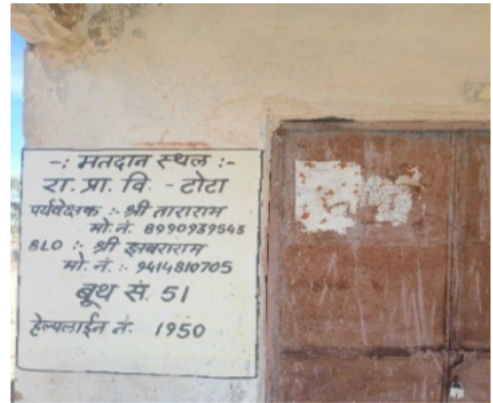 -: मतदान स्थल :-
रा. प्रा. वि. - टोटा
पर्यवेक्षक :- श्री ताराराम
मो. नं. 8990939543
BLO :- श्री झबराराम
मो. नं. :- 9414810705
बूथ सं. 51
हेल्पलाईन नं. 1950